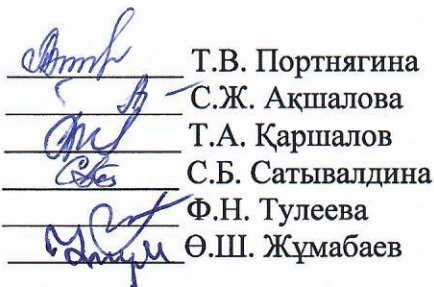 Т.В. Портнягина
С.Ж. Ақшалова
Т.А. Қаршалов
С.Б. Сатывалдина
Ф.Н. Тулеева
Ө.Ш. Жұмабаев